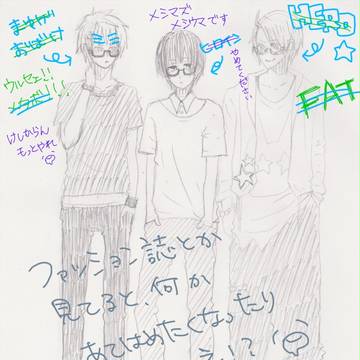 まゆげ
おばけ
ウルセェ!!
メタボ!!!
けしからん
もっとやれ
メシマズ
メシウマです
やめてください
HERO
FAT
ファッション誌とか
見てると、何か
あてはめたくなったり